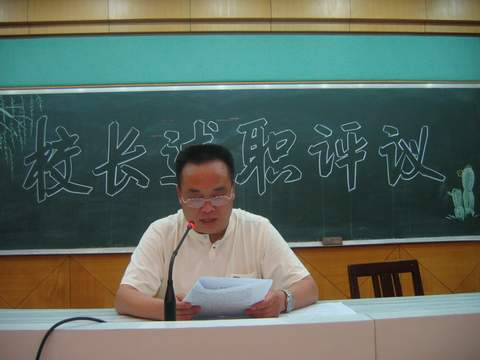 校长述职评议